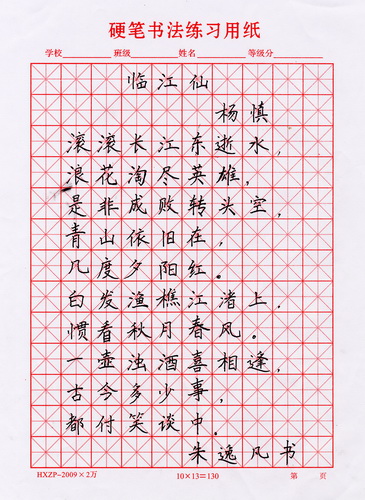 硬笔书法练习用纸
学校 班级 姓名 等级分
临江仙
杨慎
滚滚长江东逝水，
浪花淘尽英雄，
是非成败转头空，
青山依旧在，
几度夕阳红。
白发渔樵江渚上，
惯看秋月春风。
一壶浊酒喜相逢，
古今多少事，
都付笑谈中。
朱逸凡书
HXZP-2009×2万 10×13=130 第 页